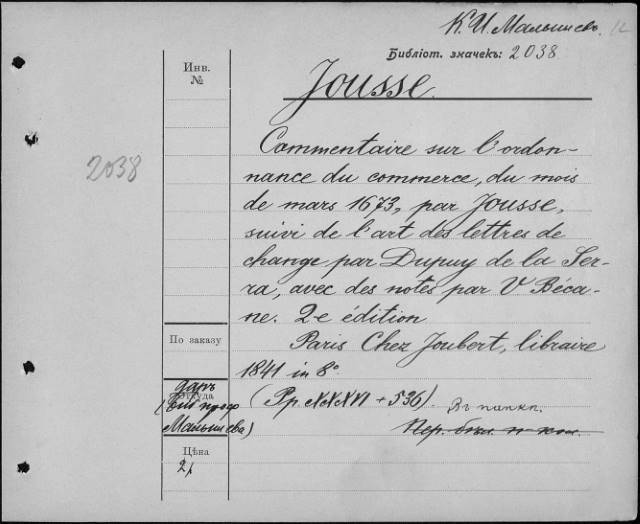 К. И. Малышевъ. 12
Библіот. значекъ: 2038.
Инв.
№
Jousse.
2038
Commentaire sur l'ordon-
nance du commerce, du mois
de mars 1673, par Jousse,
suivi de l'art des lettres de
change par Dupuy de la Ser-
ra, avec des notes par V Béca-
ne. 2-e édition
По заказу
Paris Chez Joubert, libraire
1841 in 8°
даръ
Откуда
(Pp. XXXVI + 536). Въ папкѣ.
Малышева)
Цѣна
2 р